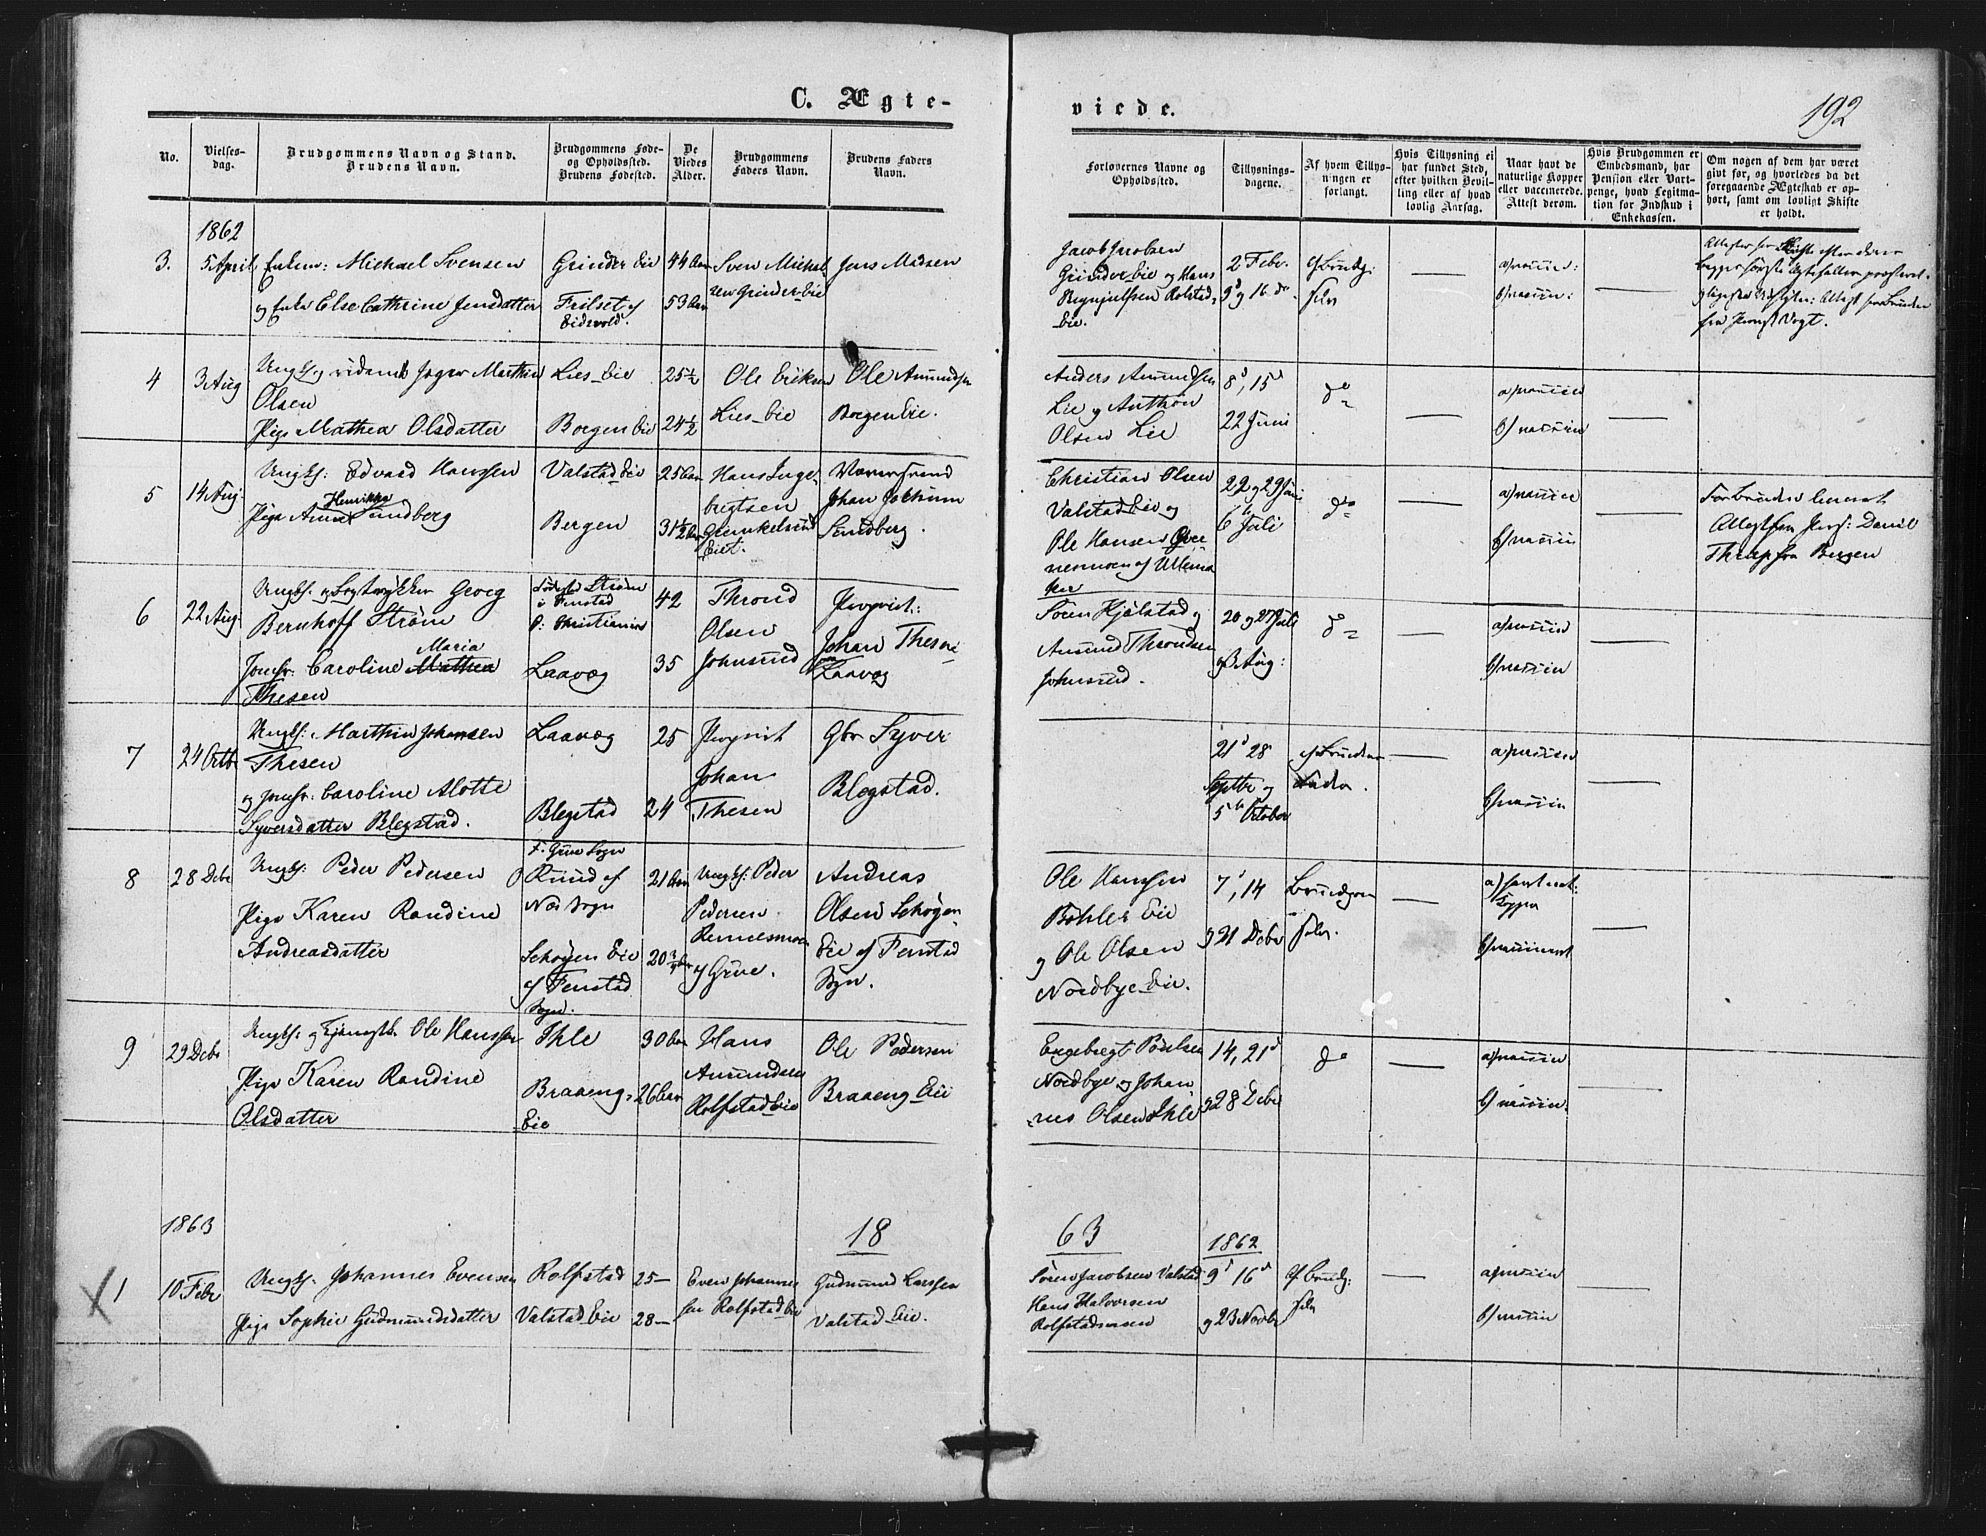 C. Ægte-
viede.
192
No.
Vielses-
dag.
Brudgommens Navn og Stand.
Brudens Navn.
Brudgommens Føde-
og Opholdssted.
Brudens Fødested.
De
Viedes
Alder.
Brudgommens
Faders Navn.
Brudens Faders
Navn.
Forlovernes Navne og
Opholdssted.
Tillysnings-
dagene.
Af hvem Tillys-
ningen er
forlangt.
Hvis Tillysning ei
har fundet Sted,
efter hvilken Bevil-
ling eller af hvad
lovlig Aarsag.
Naar havt de
naturlige Kopper
eller vaccinerede.
Attest derom.
Hvis Brudgommen er
Embedsmand, har
Pension eller Vart-
penge, hvad Legitima-
tion for Indskud i
Enkekassen.
Om nogen af dem har været
givt før, og hvorledes da det
foregaaende Ægteskab er op-
hørt, samt om lovligt Skifte
er holdt.
1862
3.
5 April
Enkem: Michael Svensen
og Enke Else Cathrine Jensdatter
Grinder Eie
Frilset af
Eidsvold.
44 Aar
53 Aar
Sven Michel-
sen Grinder Eie
Jens Madsen
Jacob Jacobsen
Grinder Eie og Hans
Rolstad
Eie.
2 Febr.
9d og 16 do.
af Brudg:
selv
a/ vaccin:
b/ vaccin:
4
3 Aug
Ungk. og Jæger Marthin
Olsen
Pige Mathea Olsdatter
Lies Eie
Borgen Eie
25½
24½
Ole Eriksen
Lies Eie
Ole Amundsen
Borgen Eie.
Anders Amundsen
Lie og Anthon
Olsen Lie
8d, 15d
22 Juni
do
a/ vaccin
b/ vaccin
5
14 Aug.
Ungk: Edvard Hanssen
Henrikke
Pige Anne Sundberg
Valstad Eie
Bergen
25 Aar
31½ Aar
Hans Inge-
bregtsen
Gunkelsrud
Eiet.
Johan Jochum
Sundberg.
Christian Olsen
Valstad Eie og
Ole Hansen
af Ullensa
ker
22 og 29 Juni
6te Juli
do
a/ vaccin
b/ vaccin
For Bruden leveret
Attest fra Præst: Daniel
Thrap fra Bergen
6
22 Aug.
Ungk. og Georg
Bernhoff Strøm
Maria
Jomfr: Caroline Mathea
Thesen
Fødested Strøm
i Fenstad
O: Christiania
Laavæg
42
35
Thrond
Olsen
Johnsrud
Propriet:
Johan Thesen
Laavæg
Søren Hjølstad og
Amund Throndsen
Johnsrud.
20 og 27 Juli
og 3 Aug:
do
a/ vaccin
b/ vaccin
7
24 Octb
Ungk: Marthin Johansen
Thesen
og Jomfr. Caroline Alotte
Syversdatter Blegstad.
Laavæg
Blegstad
25
24
Propriet
Johan
Thesen
Gbr Syver
Blegstad.
21d 28
Septbr og
5te October
af Brudens
Fader.
a/ vaccin
b/ vaccin
8
28 Debr
Ungk: Peder Pedersen
Pige Karen Randine
Andreasdatter
F. Grue Sogn
O Ruud af
Næs Sogn
Schøyen Eie
af Fenstad
Sogn.
21 Aar
20¾ Aar
Ungk: Peder
Pedersen
af Grue.
Andreas
Olsen Schøyen
Eie af Fenstad
Sogn.
Ole Hansen
Bøhler Eie
og Ole Olsen
Nordbye Eie.
7d, 14
og 21 Debr
Brudgom
selv.
a/ havt nat:
Kopper
b/ vaccineret
9
29 Debr
Ungk: og Ole Hanssen
Pige Karen Randine
Olsdatter
Ihle
Braaeng-
Eie
30 Aar
26 Aar
Hans
Amundsen
Rolfstad Eie
Ole Pedersen
Braaeng Eie
Engebregt Poulsen
Nordbye og Johan
nes Olsen Ihle
14, 21d
og 28 Debr
do
a/ vaccin
b/ vaccin.
1863
18
63
1862
X 1
10 Febr
Ungk. Johannes Evensen
Pige Sophie Gudmundsdatter
Rolfstad
Valstad Eie
25 —
28 —
Even Johannes
sen Rolfstad Eie
Gudmund Larssen
Valstad Eie.
Søren Jacobsen Valstad
Hans Halvorsen
Rolfstad
9d 16d
og 23 Novbr
af Brudg:
selv
a/ vaccin
b/ vaccin